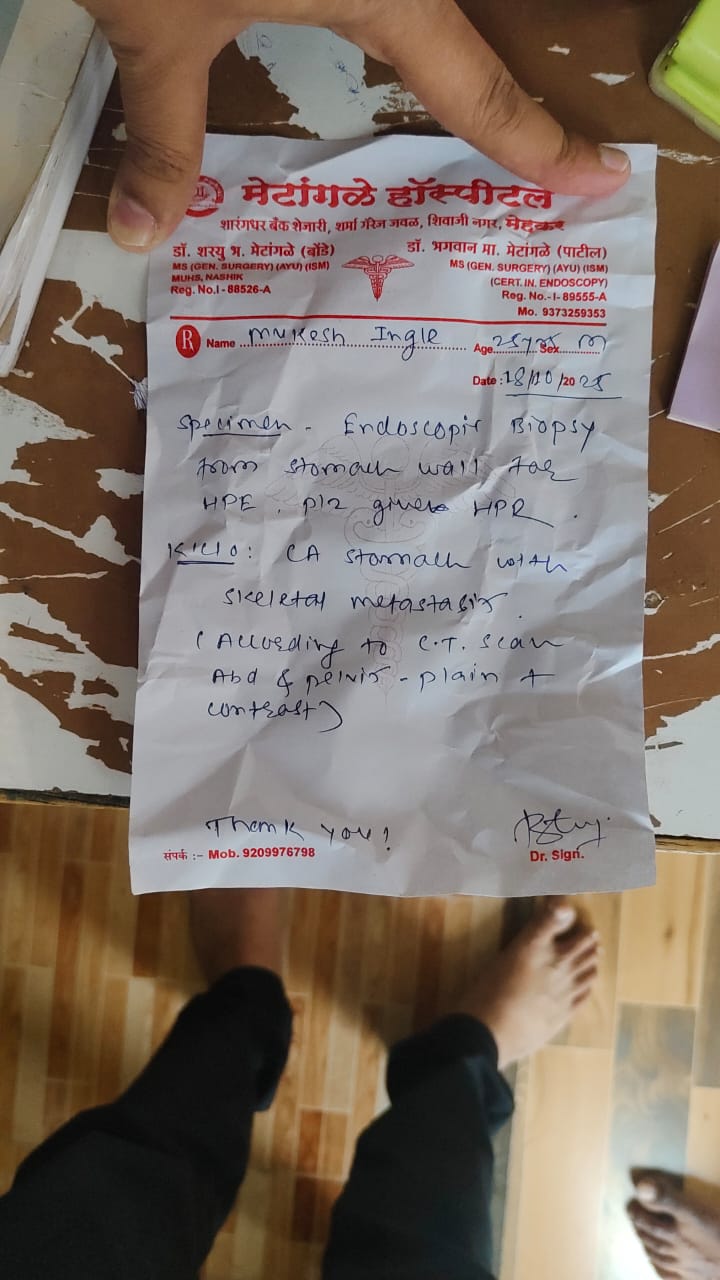 मेटांगळे हॉस्पीटल
शारंगधर बँक शेजारी, शर्मा गॅरेज जवळ, शिवाजी नगर, मेहकर
डॉ. शरयु भ. मेटांगळे (बोंडे)
MS (GEN. SURGERY) (AYU) (ISM)
MUHS, NASHIK
Reg. No.I - 88526-A
डॉ. भगवान मा. मेटांगळे (पाटील)
MS (GEN. SURGERY) (AYU) (ISM)
(CERT. IN. ENDOSCOPY)
Reg. No.-I- 89555-A
Mo. 9373259353
R Name Mukesh Ingle Age 25yrs Sex M
Date : 18/10/2025
Specimen - Endoscopic Biopsy
from stomach wall for
HPE. plz give HPR.
K/C/O : CA stomach with
skeletal metastasis.
(According to C.T. scan
Abd & pelvis - plain +
contrast)
Thank you!
संपर्क :- Mob. 9209976798
Dr. Sign.